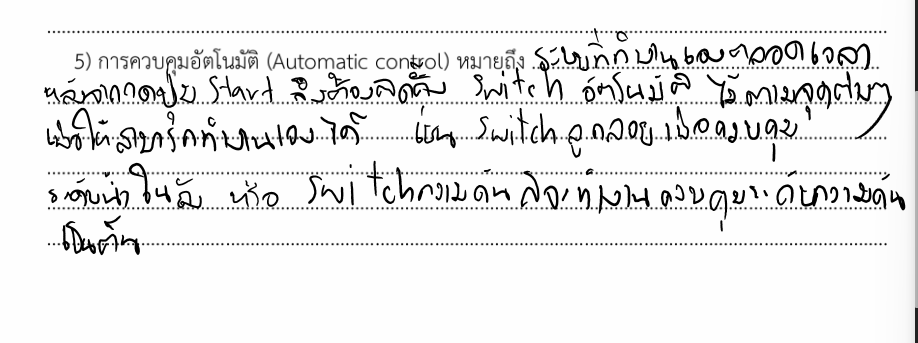 5) การควบคุมอัตโนมัติ (Automatic control) หมายถึง ระบบที่ทำงานเองตลอดเวลา
หลังจากกดปุ่ม Start ซึ่งต้องติดตั้ง Switch อัตโนมัติ ไว้ตามจุดต่างๆ
เพื่อให้สามารถทำงานเองได้ เช่น Switch ลูกลอยเพื่อควบคุม
ระดับน้ำในถัง หรือ Switch ความดันที่จะทำงานควบคุมระดับความดัน
เป็นต้น